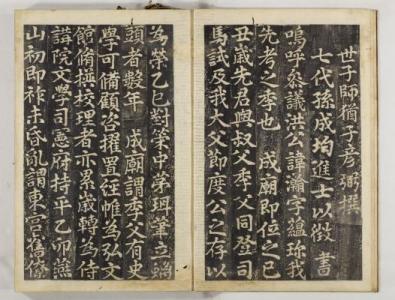 世子師猶子彥弼撰
七代孫成均進士以徵書
嗚呼叅議洪公諱瀚字蘊珍我
先考之季也 成廟即位之己
丑歲先君與叔父季父同登司
馬試及我大父節度公之存以
為榮乙巳對策中苐珥筆立螭
頭者數年 成廟謂季父有史
學可備顧咨擢置經帷為弘文
館脩撰校理者亦累歲轉為侍
講院文學司憲府持平乙卯燕
山初即祚未昏亂謂東宮舊僚